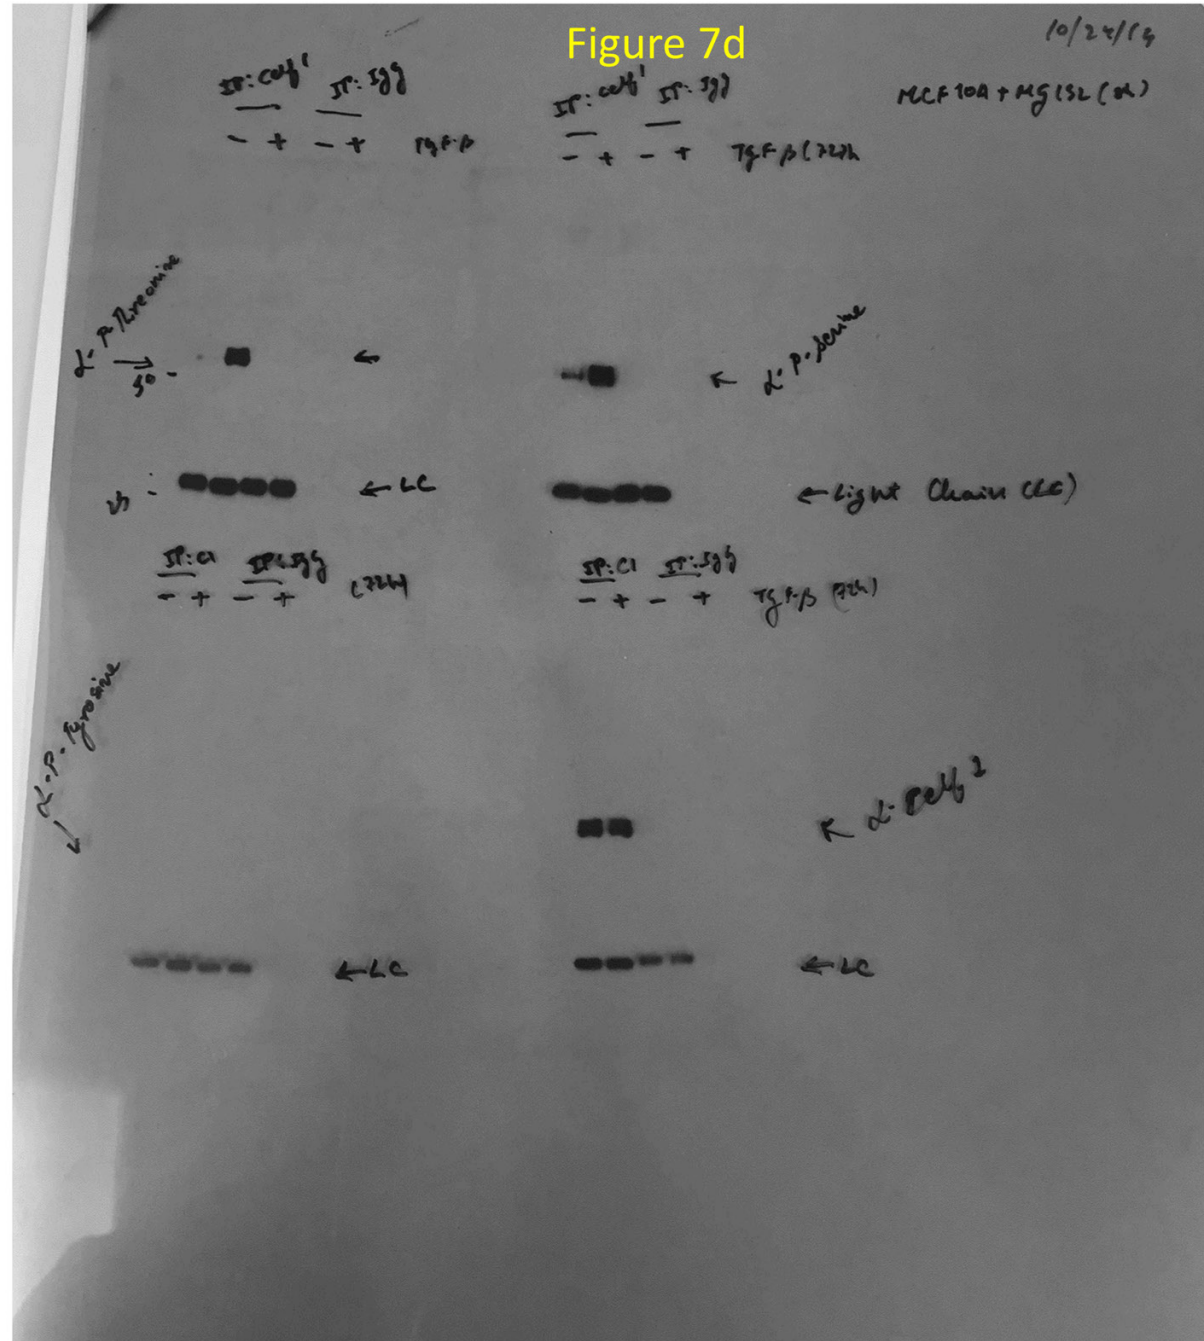 Figure 7d
10/24/14
IP: Celf1 IP: IgG
- + - + TgF-β
IP: Celf1 IP: IgG
- + - + TgF-β (72)h
MCF10A + Mg132 (8h)
α-P-Threonine
50 -
α-P-Serine
25 -
← LC
← Light Chain (LC)
IP: C1 IP: IgG
- + - + (72h)
IP: C1 IP: IgG
- + - + TgF-β (72h)
α-P-Tyrosine
α-Celf1
← LC
← LC